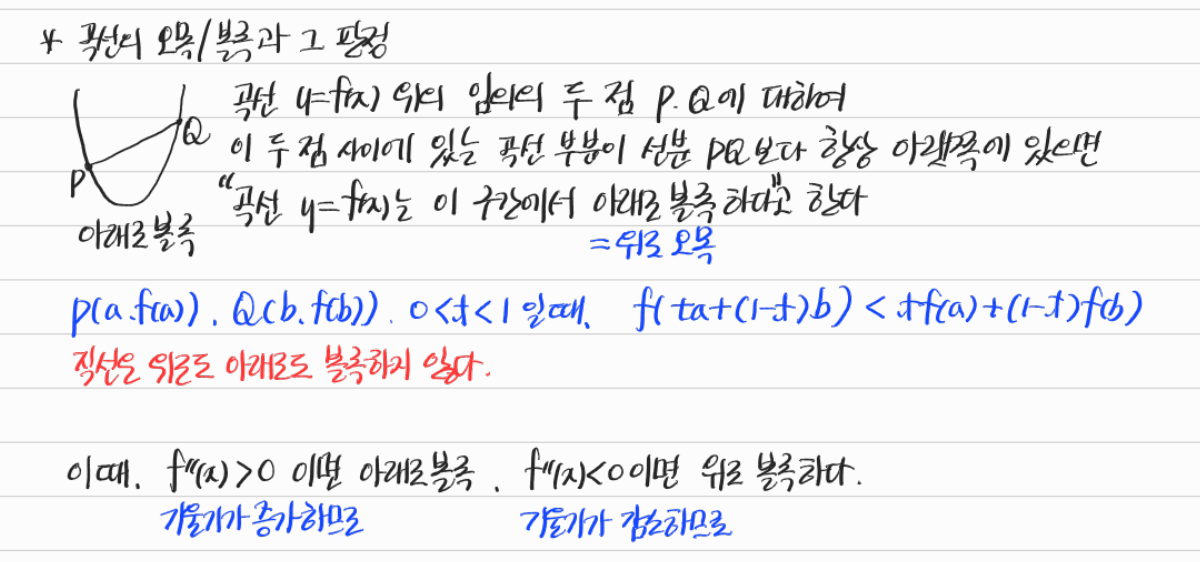 * 곡선의 오목/볼록과 그 판정
곡선 y=f(x) 위의 임의의 두 점 P. Q에 대하여
이 두 점 사이에 있는 곡선 부분이 선분 PQ보다 항상 아래쪽에 있으면
"곡선 y=f(x)는 이 구간에서 아래로 볼록하다"고 한다
= 위로 오목
P
Q
아래로볼록
P(a.f(a)). Q(b.f(b)). 0<t<1 일때. f(ta+(1-t)b) < tf(a)+(1-t)f(b)
직선은 위로도 아래로도 볼록하지 않다.
이때. f''(x)>0 이면 아래로볼록. f''(x)<0이면 위로 볼록하다.
기울기가 증가하므로
기울기가 감소하므로